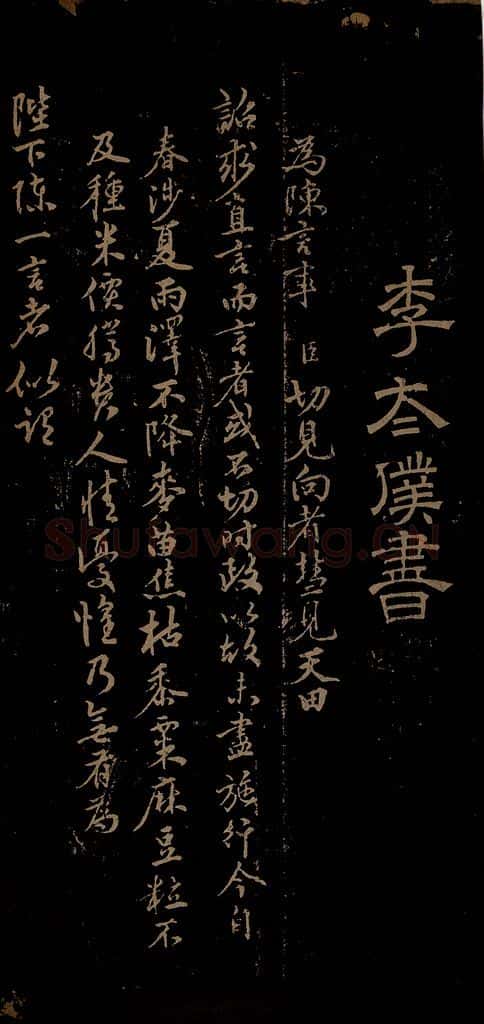 李太僕書
為陳言事 臣切見向者彗見天田
詔求直言而言者或不切時政以故未盡施行今自
春涉夏雨澤不降麥苗焦枯黍粟麻豆粒不
及種米價騰貴人情憂惶乃無有為
陛下陳一言者似謂
Shufawang.cn